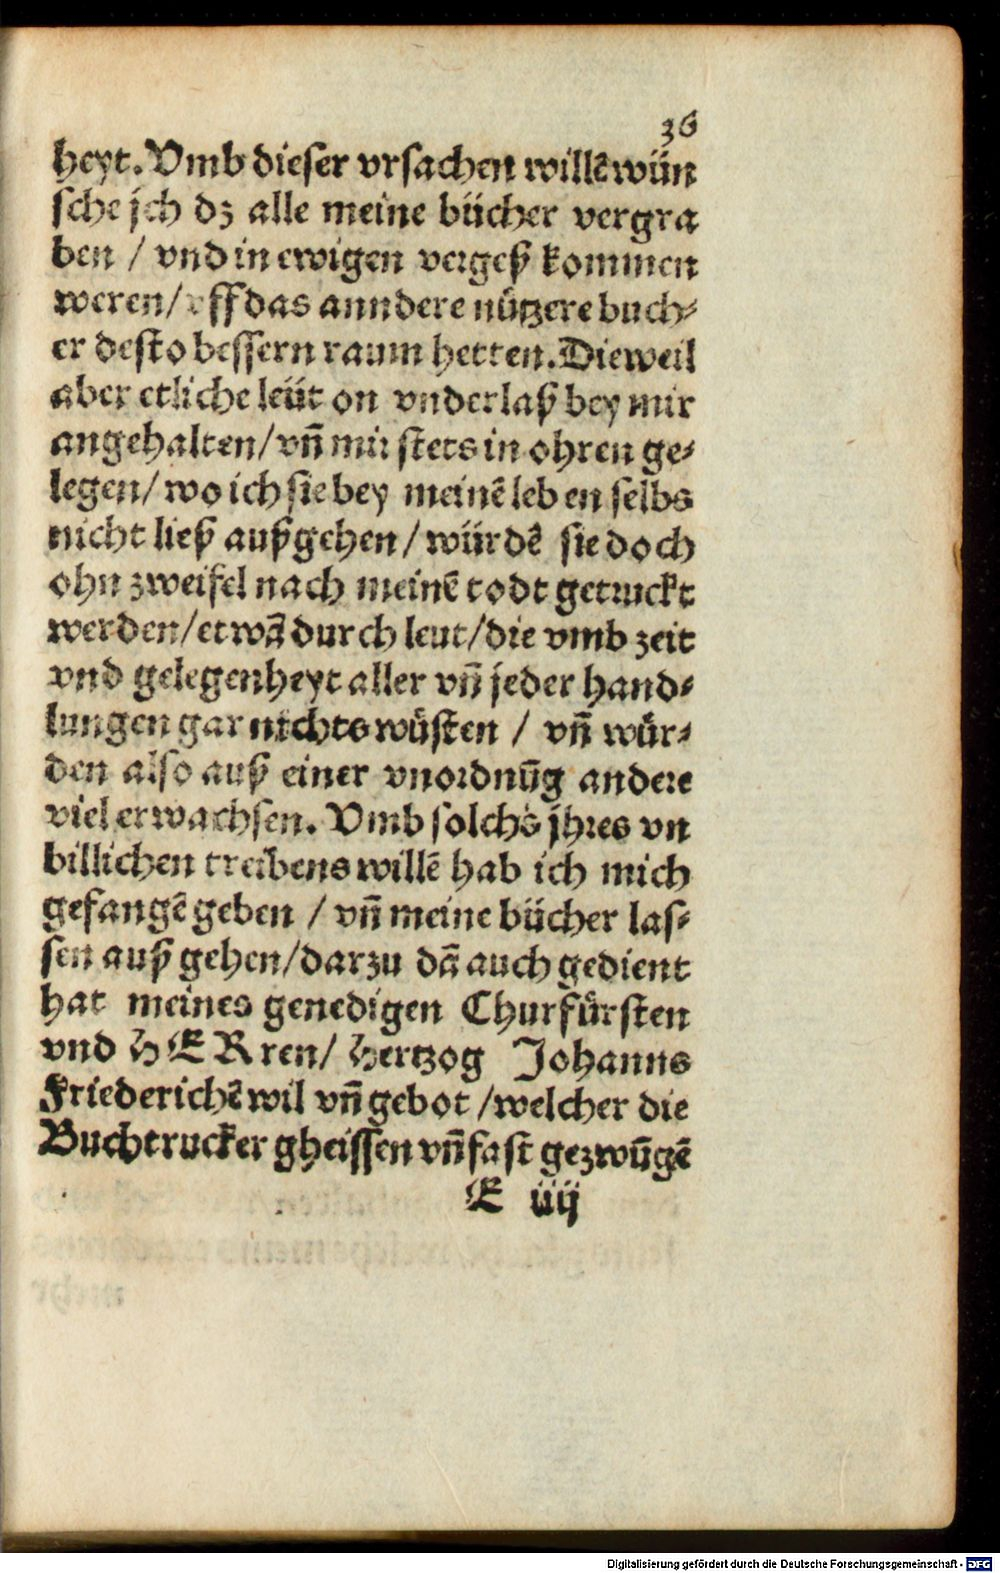 36
heyt. Vmb dieser vrsachen willẽ wün
sche jch dz alle meine bücher vergra
ben / vnd in ewigen vergeß kommen
weren / vff das anndere nützere buch⸗
er desto bessern raum hetten. Dieweil
aber etliche leüt on vnderlaß bey mir
angehalten / vñ mir stets in ohren ge⸗
legen / wo ich sie bey meinẽ leben selbs
nicht ließ außgehen / würdẽ sie doch
ohn zweifel nach meinẽ todt getruckt
werden / etwã durch leut / die vmb zeit
vnd gelegenheyt aller vñ jeder hand⸗
lungen gar nichts wüsten / vñ wür⸗
den also auß einer vnordnũg andere
viel erwachsen. Vmb solchs jhres vn
billichen treibens willẽ hab ich mich
gefangẽ geben / vñ meine bücher las⸗
sen auß gehen / darzu dã auch gedient
hat meines genedigen Churfürsten
vnd HERren / Hertzog Johanns
Friederichẽ wil vñ gebot / welcher die
Buchtrucker gheissen vñ fast gezwũgẽ
E iiij
Digitalisierung gefördert durch die Deutsche Forschungsgemeinschaft - DFG